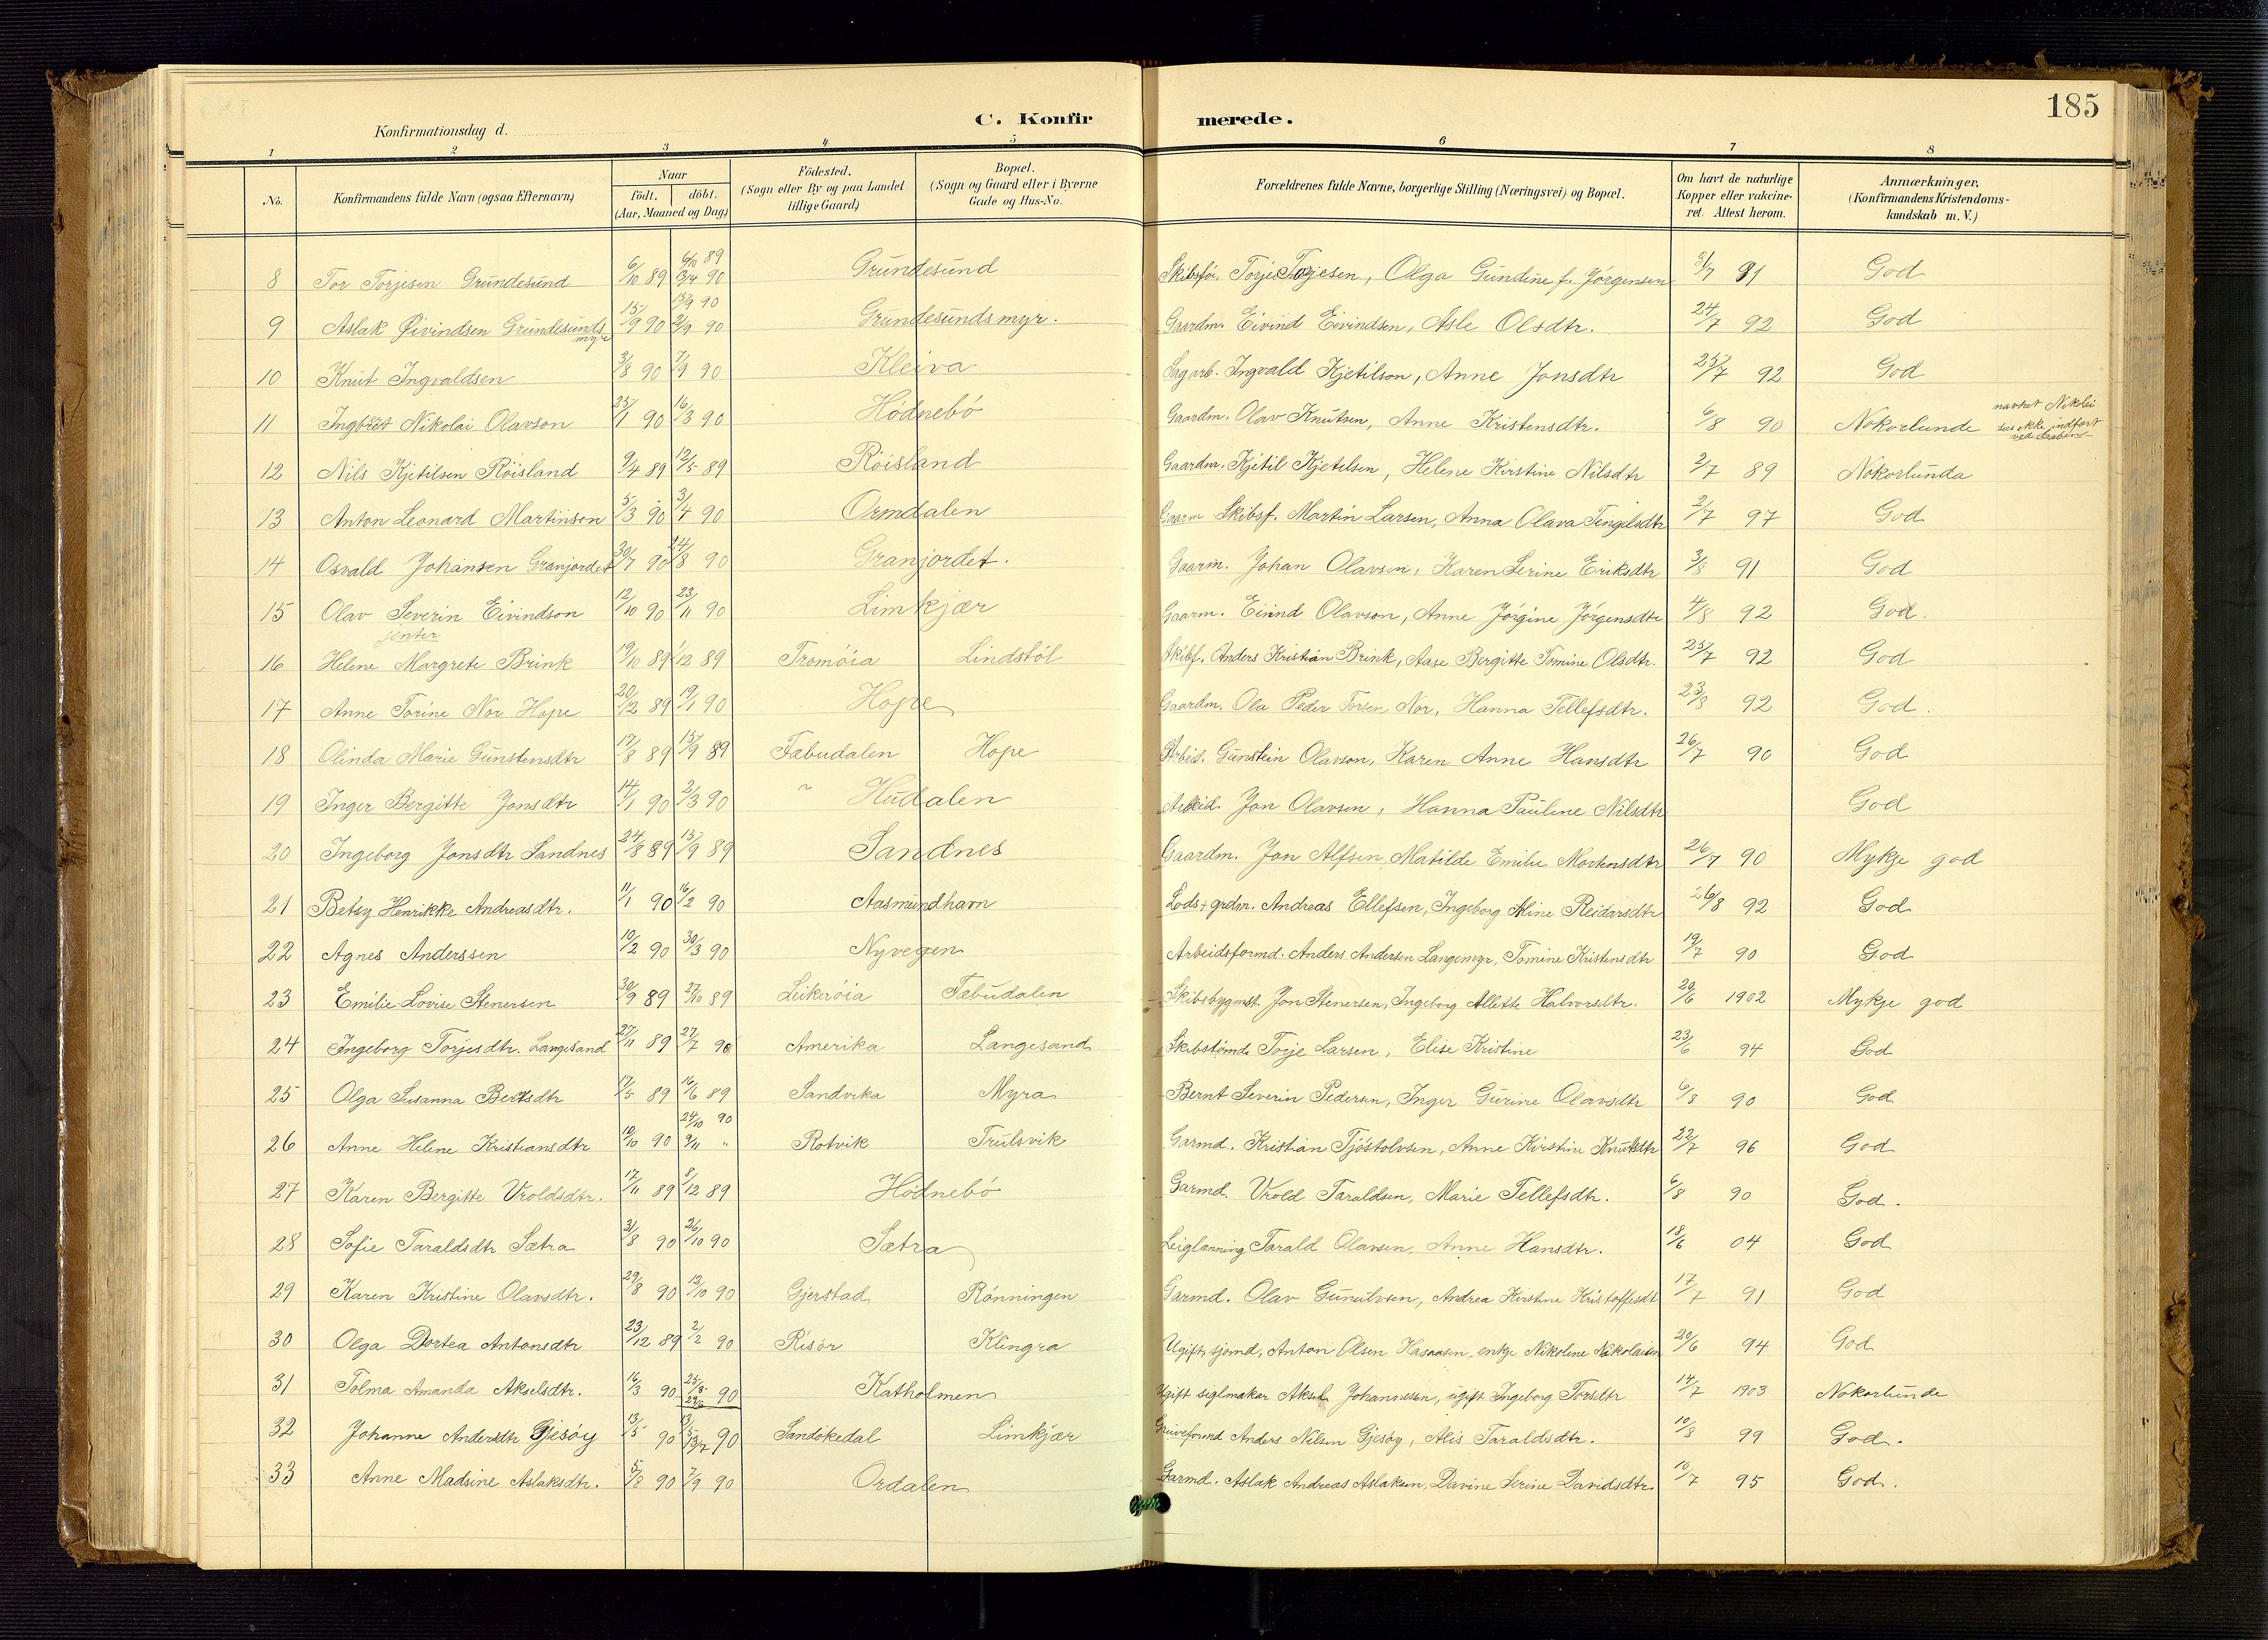 185
Konfirmationsdag d.
C. Konfirmerede.
1 2 3 4 5 6 7 8
No. Konfirmandens fulde Navn (ogsaa Efternavn) Naar födt. döbt. (Aar, Maaned og Dag) Födested. (Sogn eller By og paa Landet tillige Gaard) Bopæl. (Sogn og Gaard eller i Byerne Gade og Hus-No. Forældrenes fulde Navne, borgerlige Stilling (Næringsvei) og Bopæl. Om havt de naturlige Kopper eller vakcineret. Attest herom. Anmærkninger, (Konfirmandens Kristendomskundskab m. V.)
8 Tor Torjesen Grundesund 6/10 89 6/10 89 13/4 90 Grundesund Skibsför. Torje Torjesen, Olga Gundine f. Jörgensen 31/7 91 God
9 Aslak Øivindsen Grundesundsmyr 15/9 90 15/9 90 2/9 90 Grundesundsmyr. Gaardm. Eivind Eivindsen, Asle Olsdtr. 24/7 92 God
10 Knut Ingvaldsen 3/8 90 7/9 90 Kleiva Sagarb. Ingvald Kjetilson, Anne Jonsdtr 25/7 92 God
11 Ingbret Nikolai Olavson 25/1 90 16/3 90 Hödnebö Gaardm. Olav Knutsen, Anne Kristensdtr. 6/8 90 Nokorlunde navnet Nikolai ses ikke indfört ved daaben
12 Nils Kjetilsen Röisland 9/4 89 12/5 89 Röisland Gaardm. Kjetil Kjetilsen, Helene Kirstine Nilsdtr 2/7 89 Nokorlunda
13 Anton Leonard Martinson 5/3 90 3/4 90 Ormdalen Gaarm Skibsf. Martin Larsen, Anna Olava Tengelsdtr 2/7 97 God
14 Osvald Johansen Granjordet 30/7 90 24/8 90 Granjordet. Gaarm. Johan Olavsen, Karen Serine Eriksdtr 3/8 91 God
15 Olav Severin Eivindson 12/10 90 23/11 90 Limkjær Gaarm. Eivind Olavson, Anne Jörgine Jörgensdtr 4/8 92 God.
jenter
16 Helene Margrete Brink 19/10 89 1/12 89 Tromöia Lindstöl Skibsf. Anders Kristian Brink, Aase Bergitte Tomine Olsdtr. 25/7 92 God
17 Anne Torine Nor Hope 20/12 89 19/1 90 Hope Gaardm. Ola Peder Torsen Nor, Hanna Tellefsdtr. 23/8 92 God.
18 Olinda Marie Gunstensdtr 17/8 89 15/9 89 Fæbudalen Hope Arbeis. Gunstein Olavson, Karen Anne Hansdtr 26/7 90 God
19 Inger Bergitte Jonsdtr 14/1 90 2/3 90 " Hudalen Arbeid. Jon Olavsen, Hanna Pauline Nilsdtr God
20 Ingeborg Jonsdtr Sandnes 24/8 89 15/9 89 Sandnes Gaardm. Jon Alfsen, Matilde Emilie Mortensdtr 26/7 90 Mykje god
21 Betsy Henrikke Andreasdtr. 11/1 90 16/2 90 Aasmundhavn Lods + grdm. Andreas Ellefsen, Ingeborg Aline Reidarsdtr 26/8 92 God
22 Agnes Anderssen 10/2 90 30/3 90 Nyvegen Arbeidsformd. Anders Andersen Langemyr, Tomine Kristensdtr 19/7 90 God
23 Emilie Lovise Stenersen 30/9 89 27/10 89 Leikeröia Fæbudalen Skibsbygmst. Jon Stenersen, Ingeborg Allette Halvorsdtr. 20/6 1902 Mykje god
24 Ingeborg Torjesdtr. Langesand 27/11 89 27/7 90 Amerika Langesand Skibstömde Torje Larsen, Elise Kristine 23/6 94 God
25 Olga Susanna Berntsdtr 17/5 89 16/6 89 Sandvika Myra Bernt Severin Pedersen, Inger Gurine Olavsdtr 6/8 90 God
26 Anne Helene Kristiansdtr 10/10 90 24/10 90 9/11 " Rotvik Trulsvik Garmd. Kristian Tjöstolvsen, Anne Kirstine Knutsdtr 22/7 96 God
27 Karen Bergitte Vroldsdtr. 17/11 89 8/12 89 Hödnebö Garmd. Vrold Taraldsen, Marie Tellefsdtr. 6/8 90 God.
28 Sofie Taraldsdtr Sætra 31/8 90 26/10 90 Sætra Leiglænning Tarald Olavsen, Anne Hansdtr. 18/6 04 God
29 Karen Kristine Olavsdtr. 29/8 90 12/10 90 Gjerstad Rönningen Garmd. Olav Gunulvsen, Andrea Kirstine Kristoffersdt 17/7 91 God
30 Olga Dortea Antonsdtr 23/12 89 2/2 90 Risör Klingra Ugift sjömd, Anton Olsen Hasaasen, enkje Nikoline Nikolaisen 20/6 94 God
31 Tolma Amanda Akselsdtr. 16/3 90 25/3 90 29/6 Katholmen Ugift seglmakar Aksel Johannesen, ugift Ingeborg Torsdtr 14/7 1903 Nokorlunde
32 Johanne Andersdtr Gjesöy 13/5 90 13/5 13/7 90 Sandökedal Limkjær Gruveformd Anders Nilsen Gjesöy, Alis Taraldsdtr. 10/8 99 God.
33 Anne Madsine Aslaksdtr. 5/8 90 7/9 90 Ordalen Garmd. Aslak Andreas Aslaksen, Davine Serine Davidsdtr. 10/7 95 God.